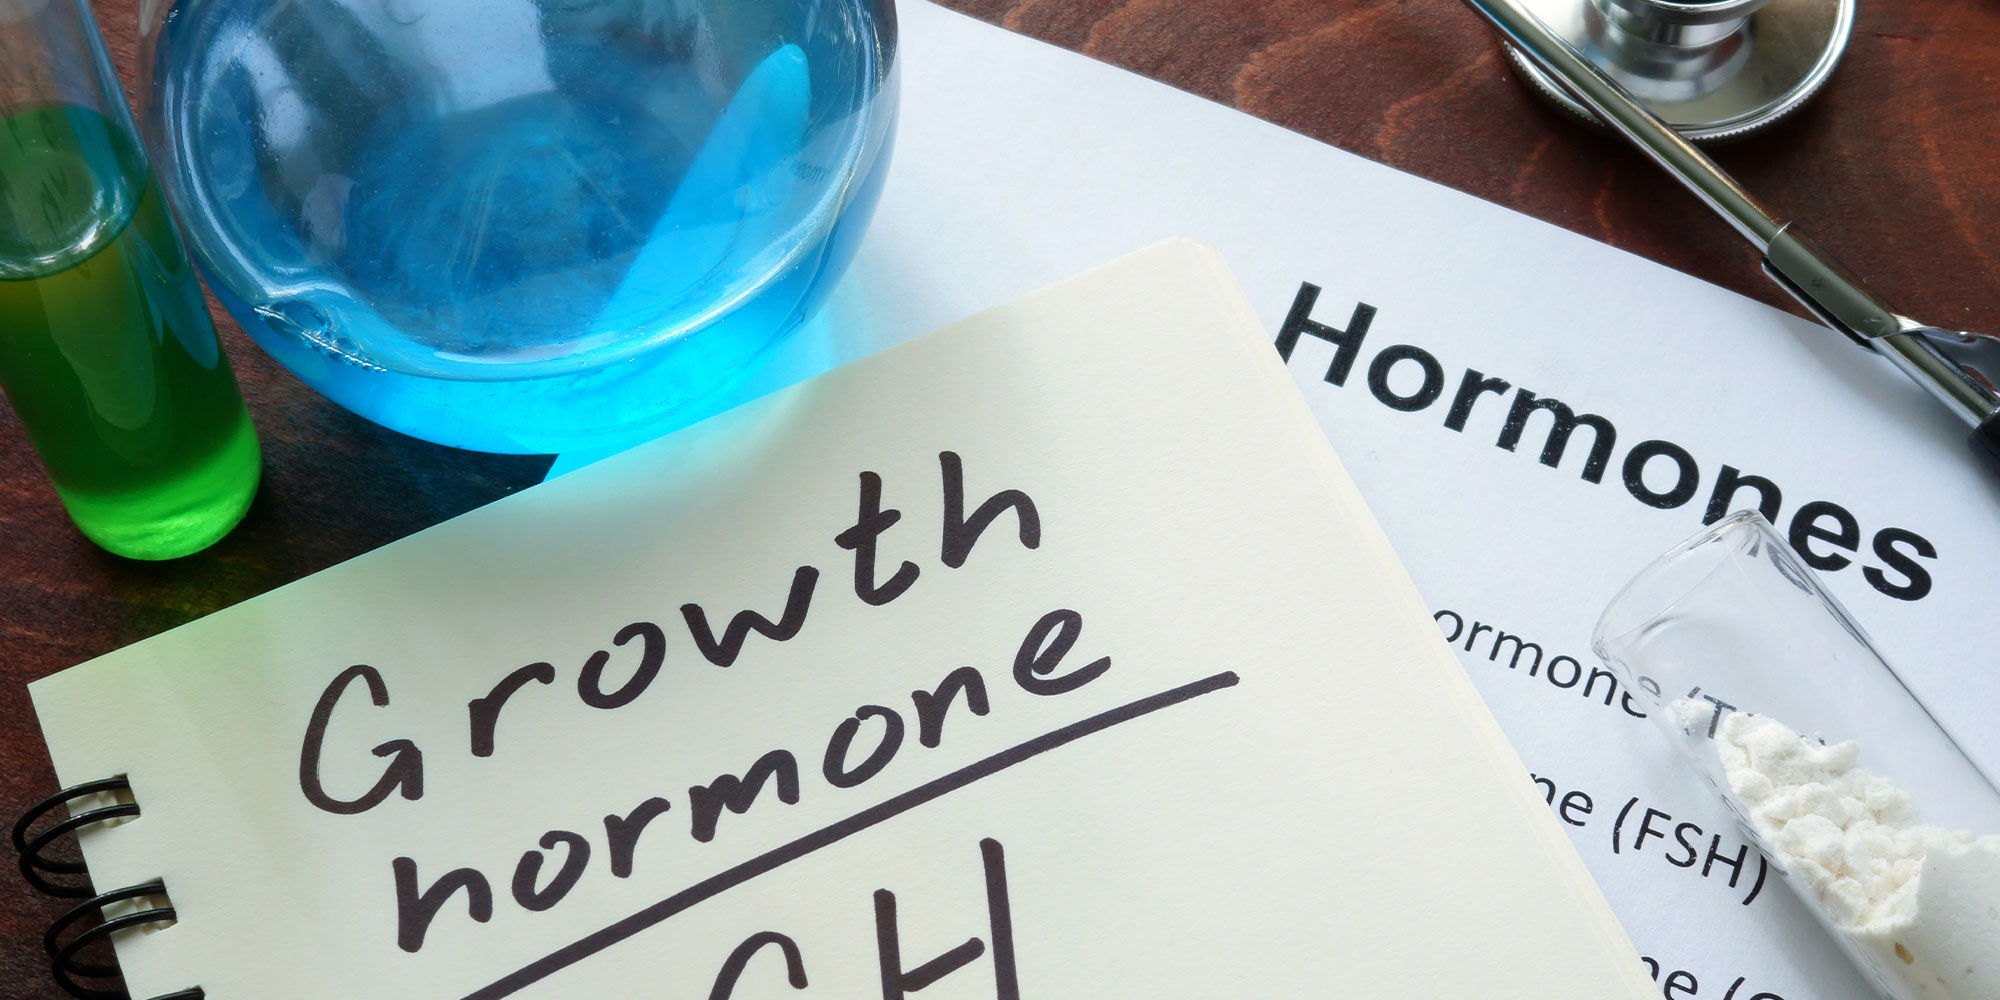 Growth
hormone
GH
Hormones
ormone
ne (FSH)
ne (